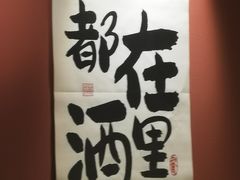 都在
酒里